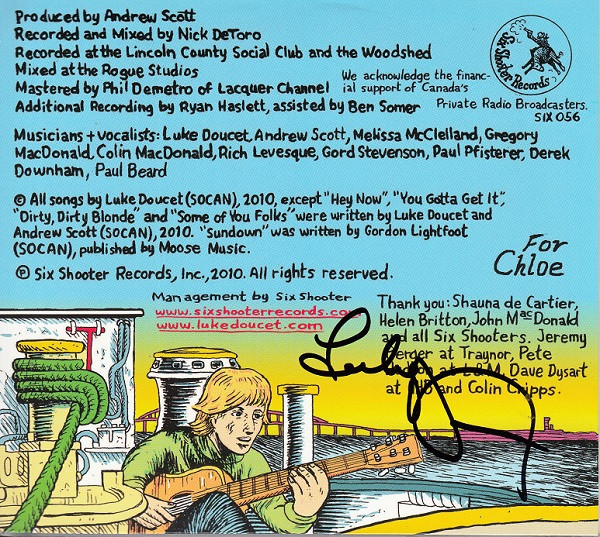 Produced by Andrew Scott
Recorded and Mixed by Nick DeToro
Recorded at the Lincoln County Social Club and the Woodshed
Mixed at the Rogue Studios
Mastered by Phil Demetro of Lacquer Channel
Additional Recording by Ryan Haslett, assisted by Ben Somer
We acknowledge the financ-
ial support of Canada's
Private Radio Broadcasters.
Six Shooter Records
SIX 056
Musicians + vocalists: Luke Doucet, Andrew Scott, Melissa McClelland, Gregory
MacDonald, Colin MacDonald, Rich Levesque, Gord Stevenson, Paul Pfisterer, Derek
Downham, Paul Beard
© All songs by Luke Doucet (SOCAN), 2010, except "Hey Now", "You Gotta Get It",
"Dirty, Dirty Blonde" and "Some of You Folks" were written by Luke Doucet and
Andrew Scott (SOCAN), 2010. "Sundown" was written by Gordon Lightfoot
(SOCAN), published by Moose Music.
For
Chloe
℗ Six Shooter Records, Inc., 2010. All rights reserved.
Management by Six Shooter
www.sixshooterrecords.co
www.lukedoucet.com
Thank you: Shauna de Cartier,
Helen Britton, John MacDonald
and all Six Shooters. Jeremy
at Traynor, Pete
at L&M, Dave Dysart
at and Colin Cripps.